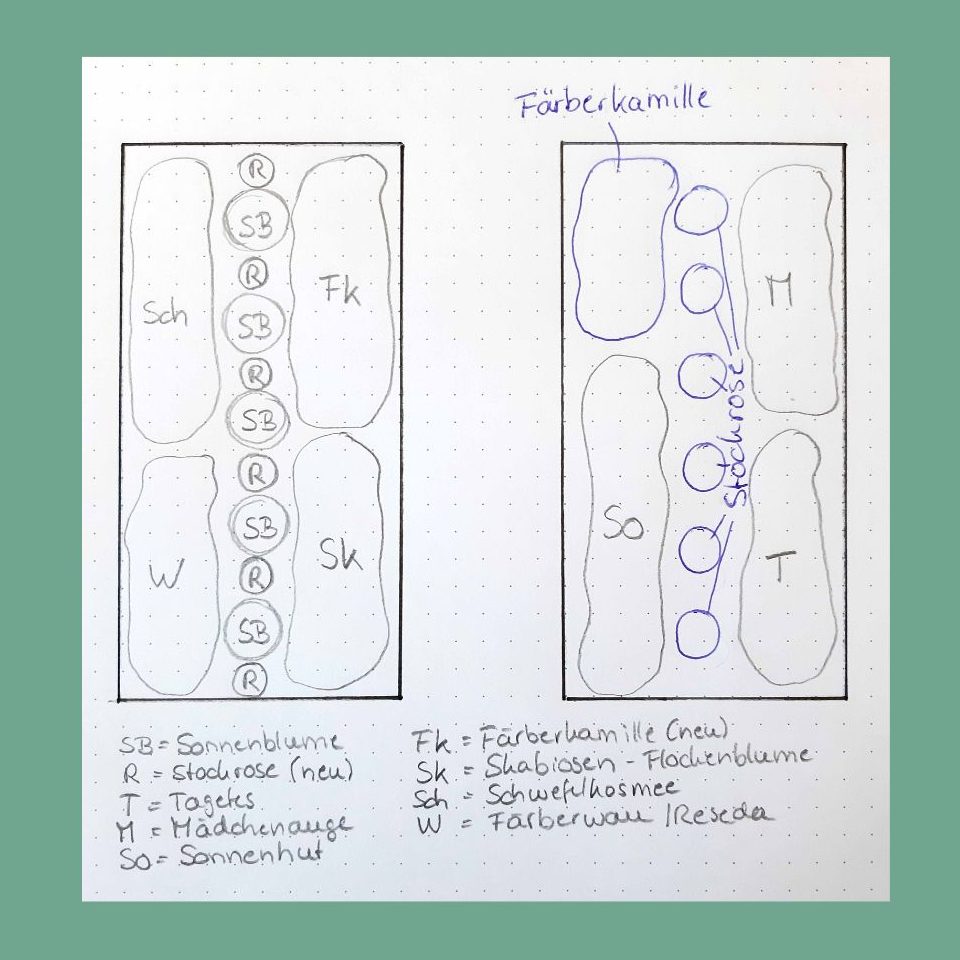 Färberkamille
R
SB
R
SB
R
SB
R
SB
R
SB
R
Sch
Fk
W
Sk
M
Stockrose
So
T
SB = Sonnenblume
R = Stockrose (neu)
T = Tagetes
M = Mädchenauge
So = Sonnenhut
Fk = Färberkamille (neu)
Sk = Skabiosen - Flockenblume
Sch = Schwefelkosmee
W = Färberwau /Reseda